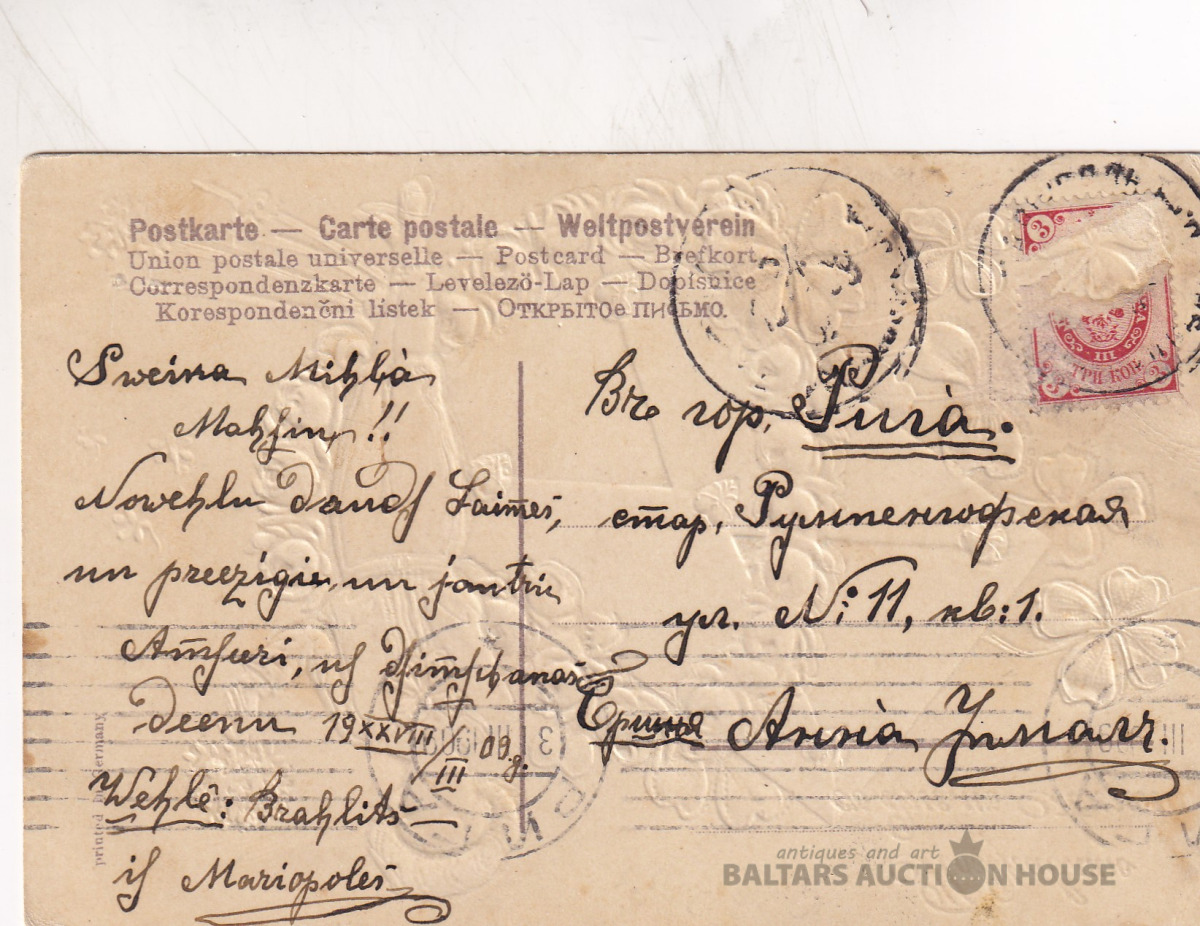 Postkarte — Carte postale — Weltpostverein
Union postale universelle — Postcard — Brefkort
Correspondenzkarte — Levelező-Lap — Dopisnice
Korespondenčni listek — Открытое письмо.
Sweika Mihļà
Mahsin, !!
Nowehlu daudſ Laimes,
un preezigu, un jautru
un ſ dſimſchanas
deenu 19 XXVIII/III 09 g.
Wehlê: Brahlits
iſ Mariopoles
Въ гор. Рига.
стар. Румпенгофская
ул. №: 11, кв: 1.
Анна
3
ТРИ КОП
3
3
printed in Germany
antiques and art
BALTARS AUCTION HOUSE